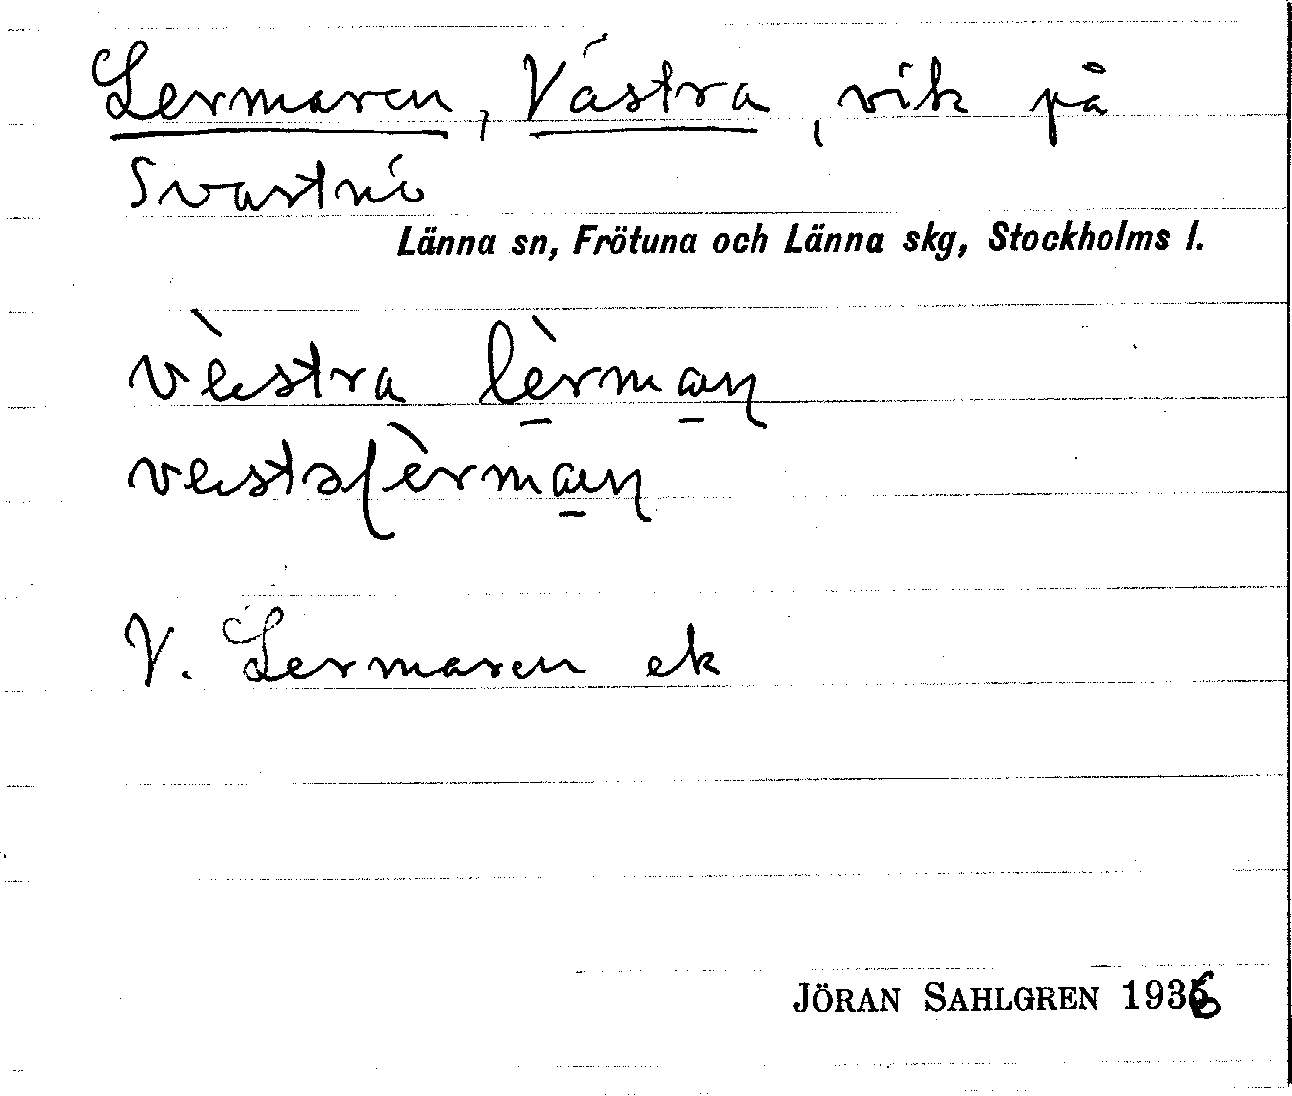 Lermaren, Västra, vik på
Svartnö
Länna sn, Frötuna och Länna skg, Stockholms l.
vèstra lèrmaṇ
V. Lermaren ek
JÖRAN SAHLGREN 1936